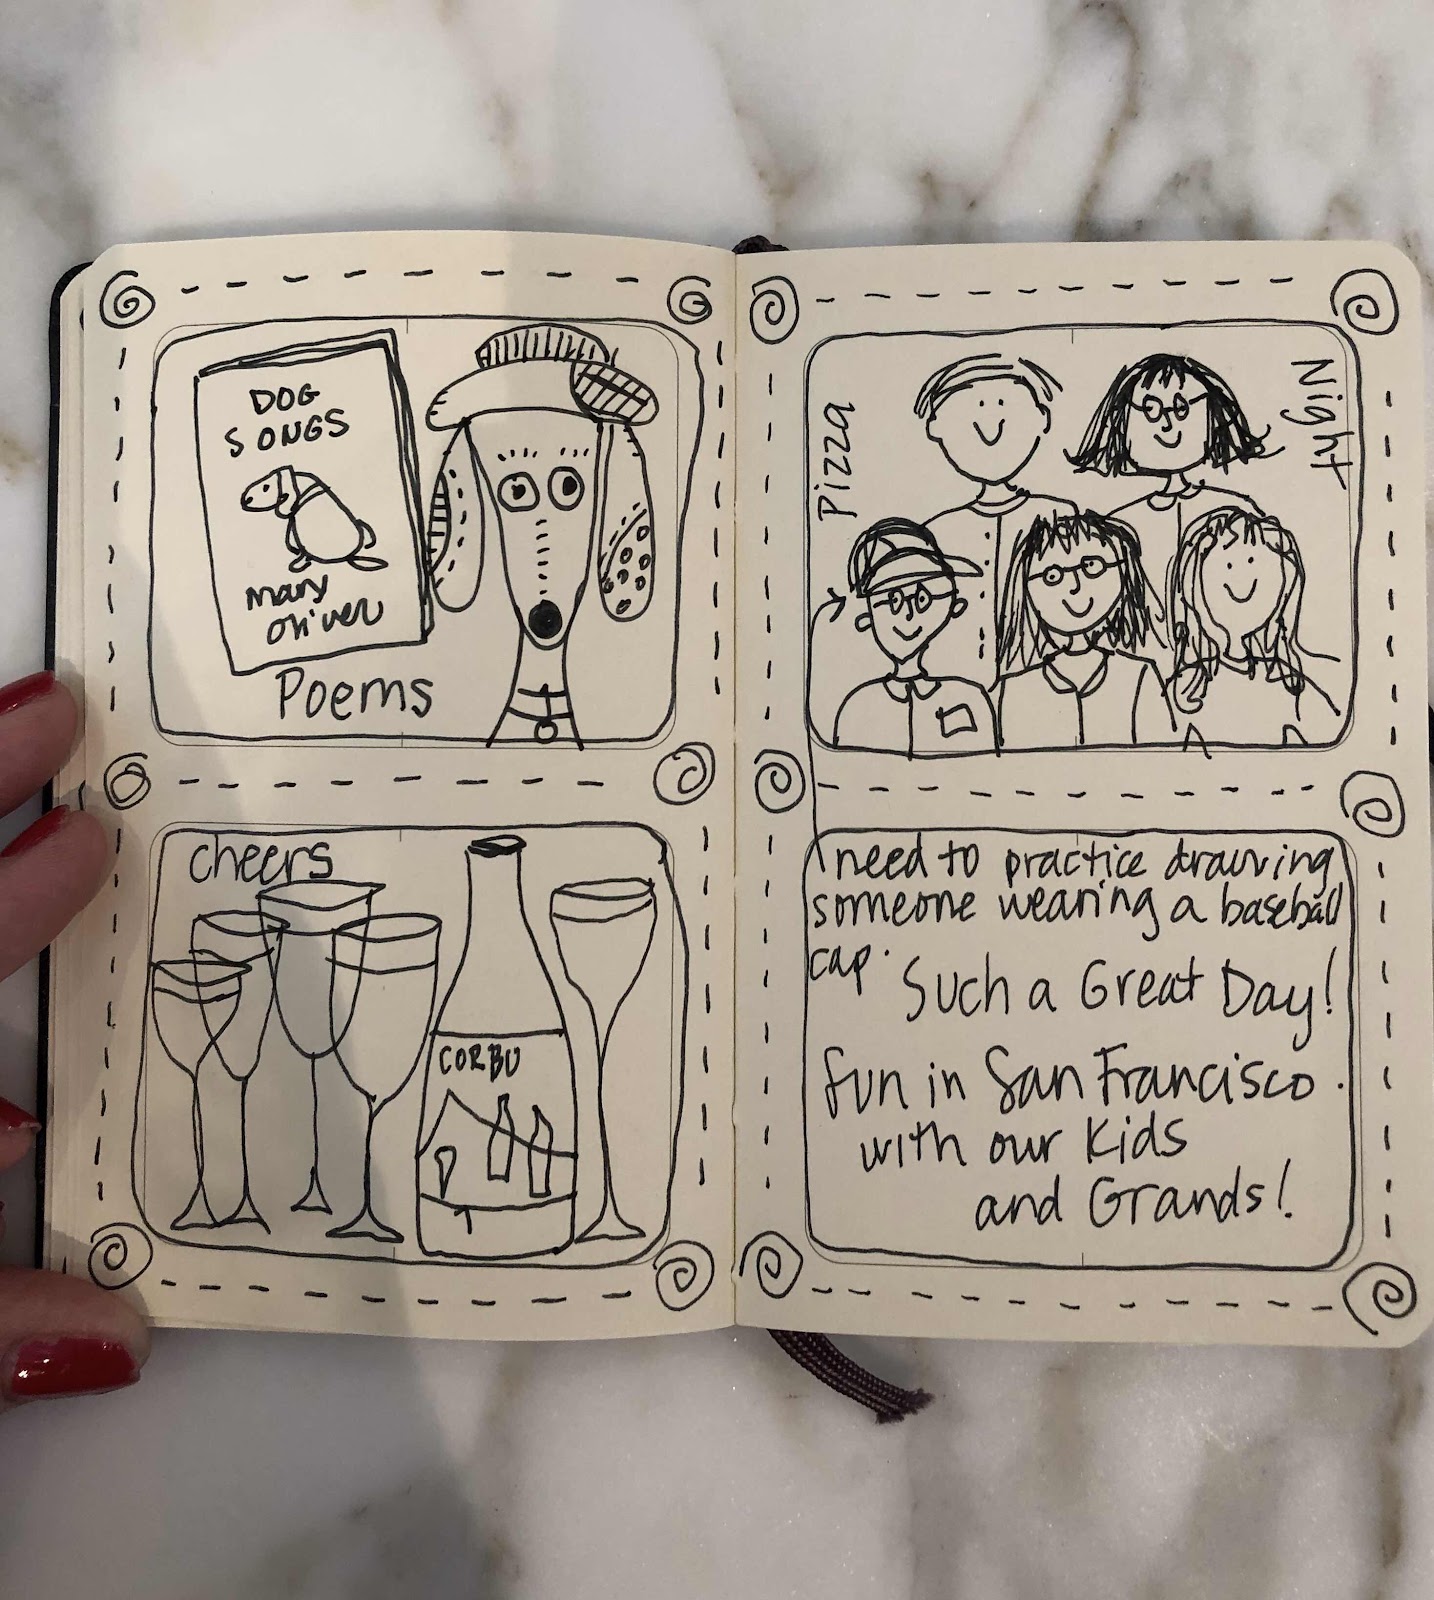 DOG
SONGS
Mary
Oliver
Poems
cheers
CORBU
Pizza
Night
I need to practice drawing
someone wearing a baseball
cap.
Such a Great Day!
Fun in San Francisco.
with our Kids
and Grands!